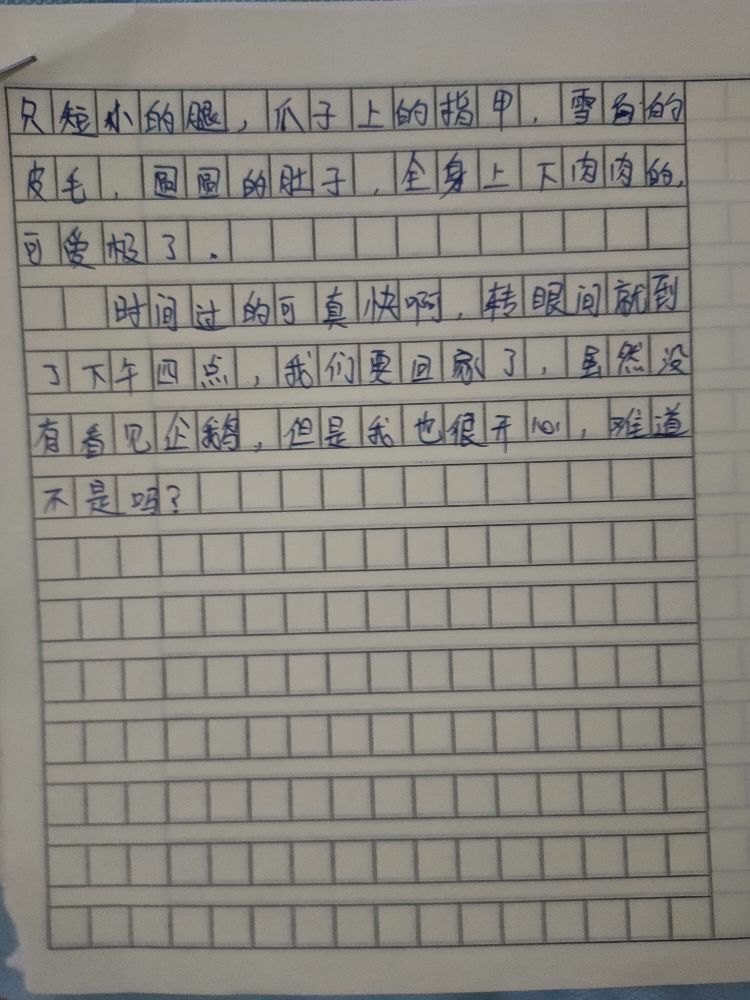 只短小的腿，爪子上的指甲，雪白的
皮毛，圆圆的肚子，全身上下肉肉的，
可爱极了．
时间过的可真快啊，转眼间就到
了下午四点，我们要回家了，虽然没
有看见企鹅，但是我也很开心，难道
不是吗？